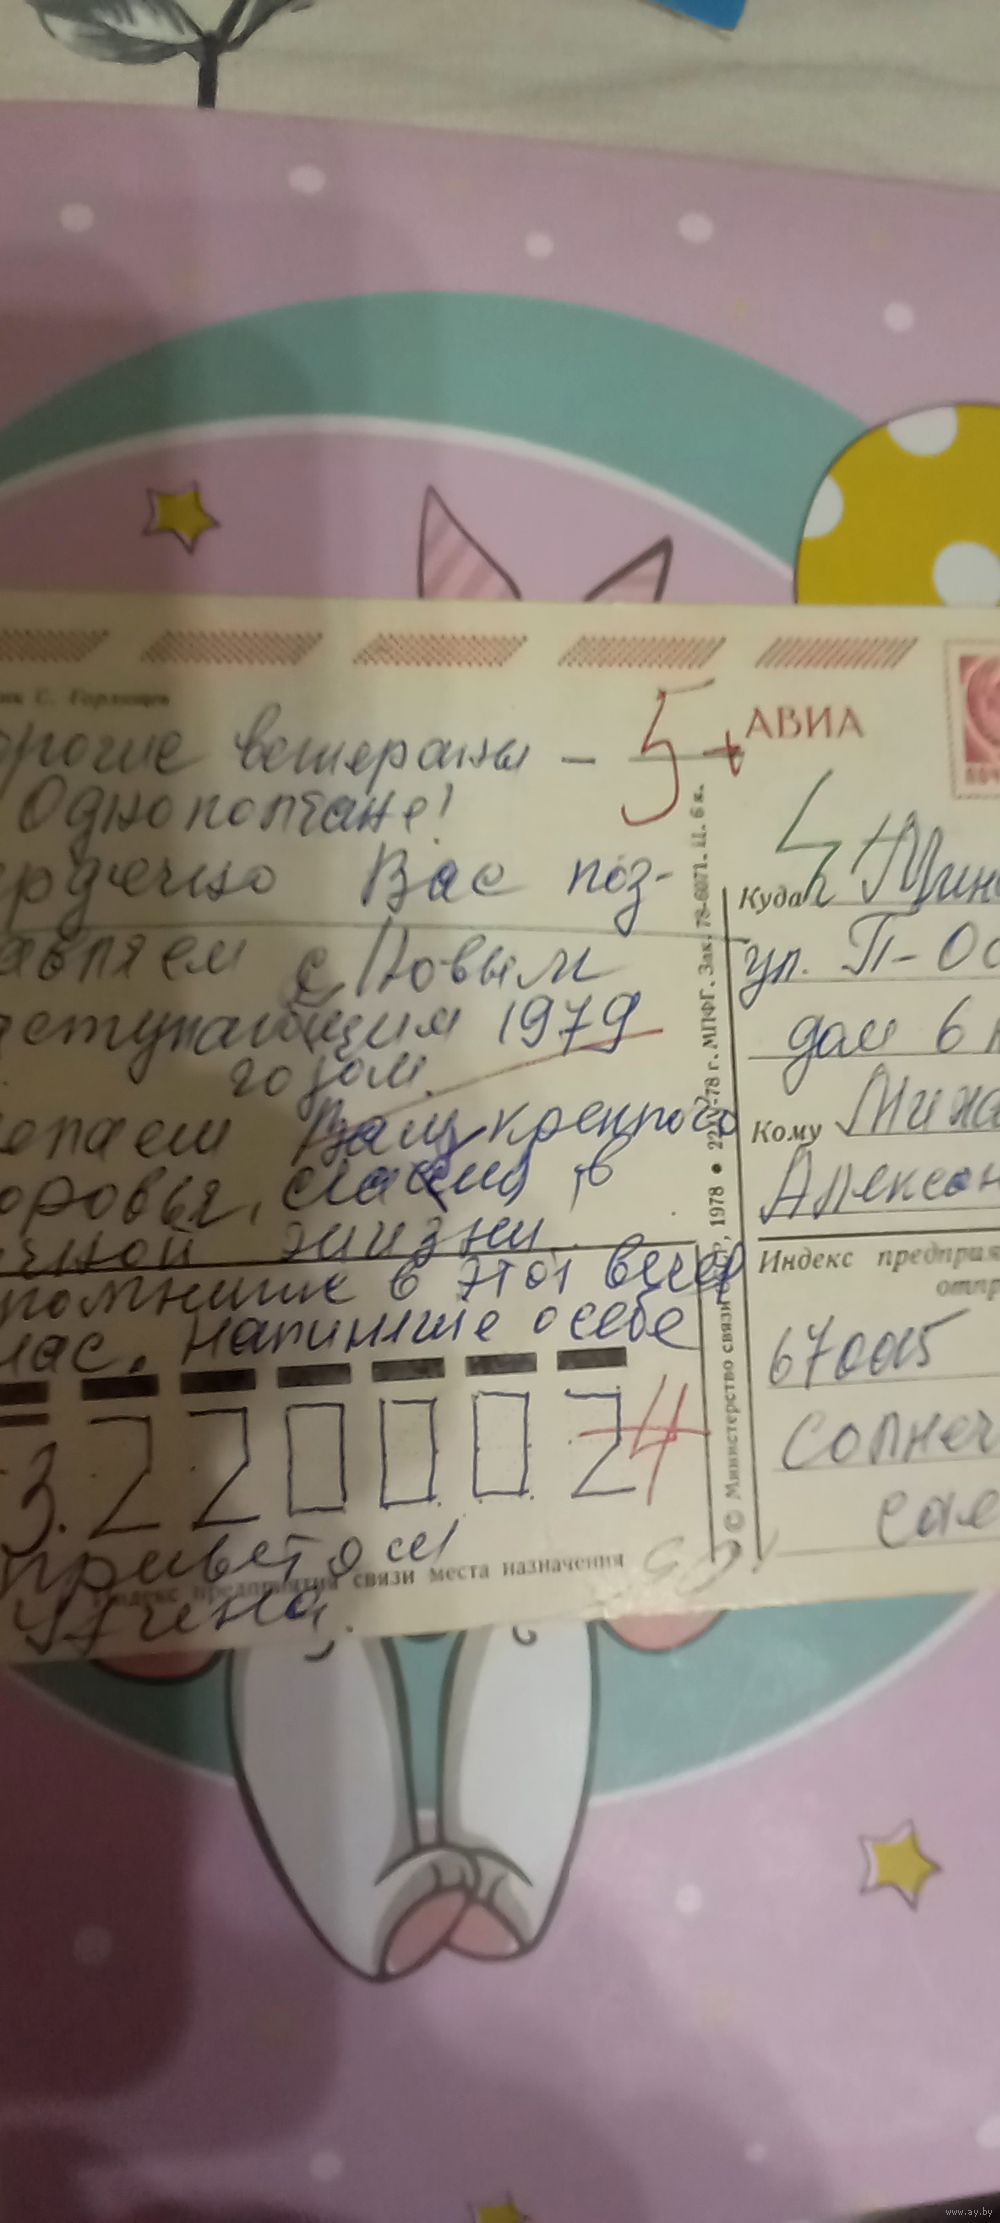 ик С. Горлищев
орогие ветераны –
Однополчане!
рдечно Вас поз-
авляем с Новым
аступающим 1979
годом.
елаем Вам крепкого
оровья, счастья в
ичной жизни.
помните в этот вечер
нас, напишите о себе
3.
220002
привет от
Индекс предприятия связи места назначения
5+
4
© Министерство связи СССР, 1978 • 22. -78 г. МПФГ. Зак. 78-6071. Ц. 6 к.
АВИА
ПОЧ
Куда Минс
ул. П-Ос
дом 6 к
Кому Миха
Алексан
Индекс предприя
отпр
670015
Солнеч
www.ay.by